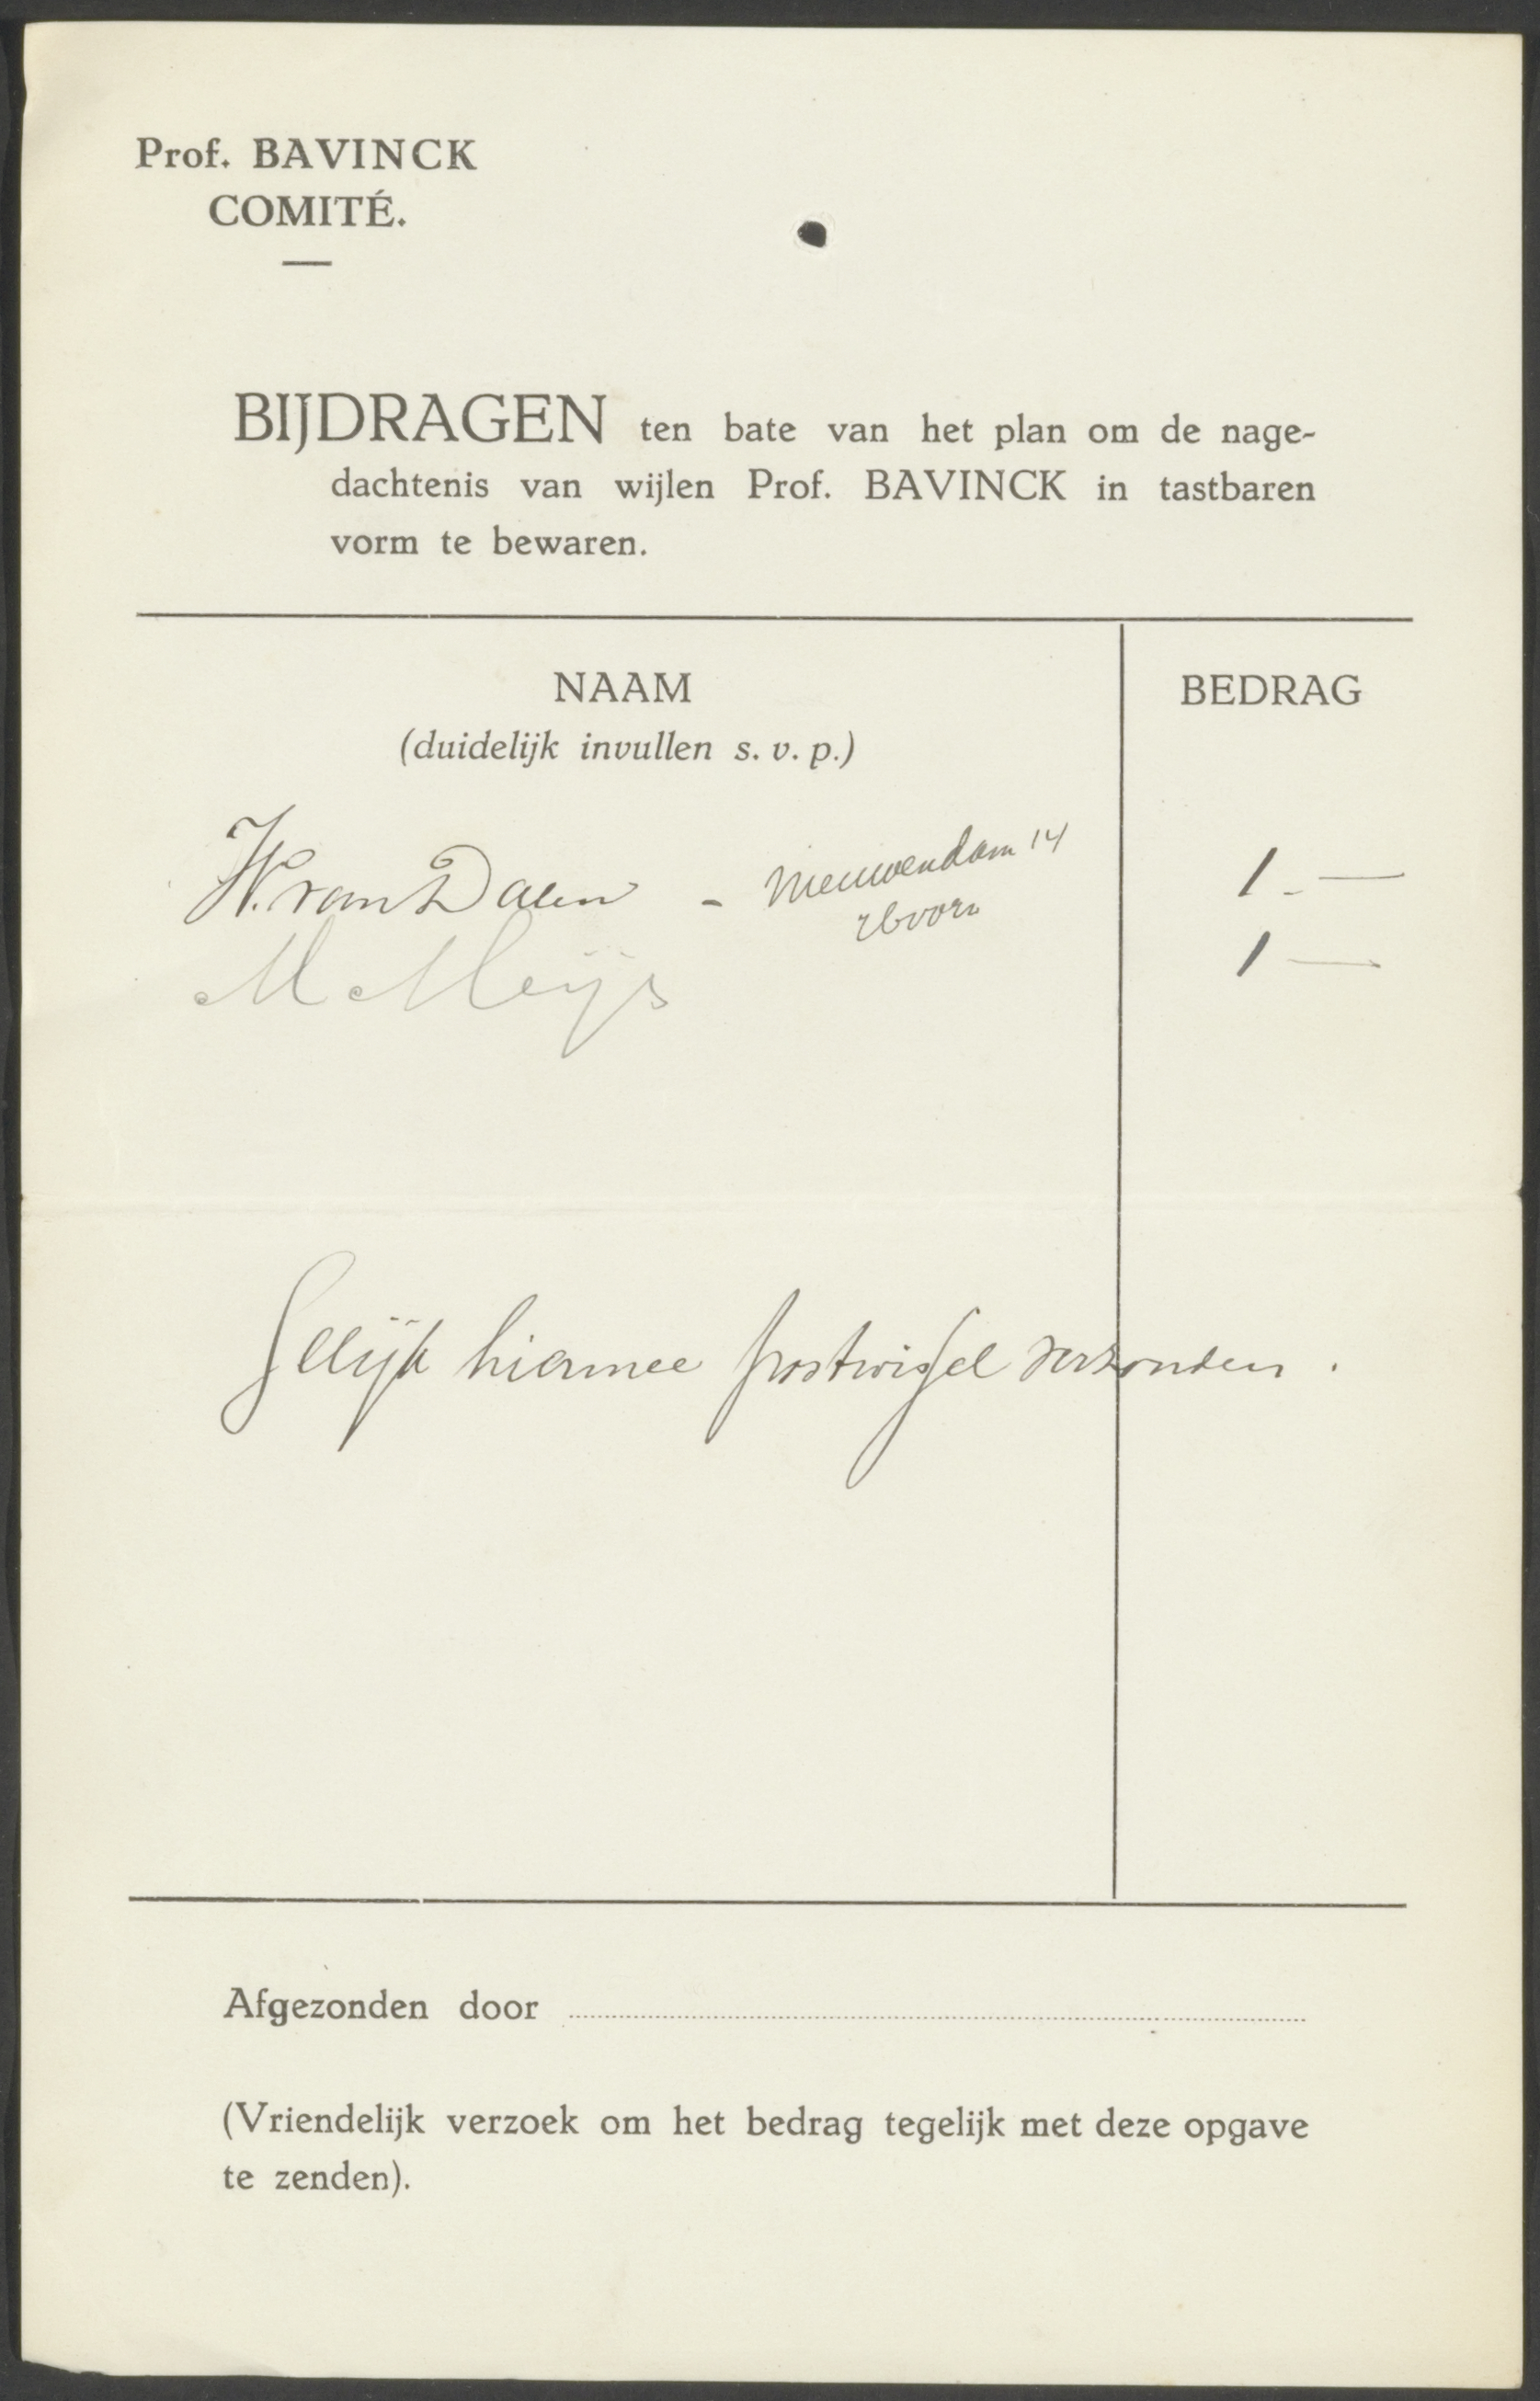 Prof. BAVINCK
COMITÉ.
BIJDRAGEN ten bate van het plan om de nage-
dachtenis van wijlen Prof. BAVINCK in tastbaren
vorm te bewaren.
NAAM BEDRAG
(duidelijk invullen s. v. p.)
W. van Dalen - Nieuwendam 14 1.—
M Meijs 1 —
Gelijk hiermee postwissel verzonden.
Afgezonden door
(Vriendelijk verzoek om het bedrag tegelijk met deze opgave
te zenden).